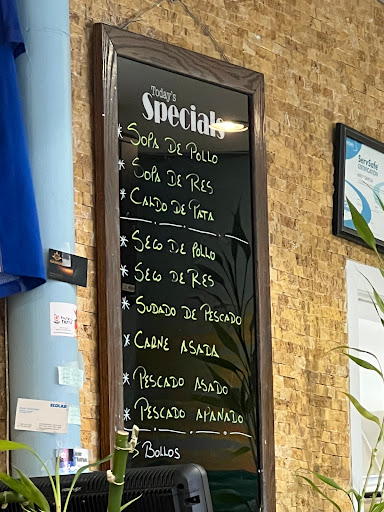 Today's
Specials
* SOPA DE POLLO
* SOPA DE RES
* CALDO DE PATA
* SECO DE POLLO
* SECO DE RES
* SUDADO DE PESCADO
* CARNE ASADA
* PESCADO ASADO
* PESCADO APANADO
→ BOLLOS
ServSafe
CERTIFICATION
ECOLAB